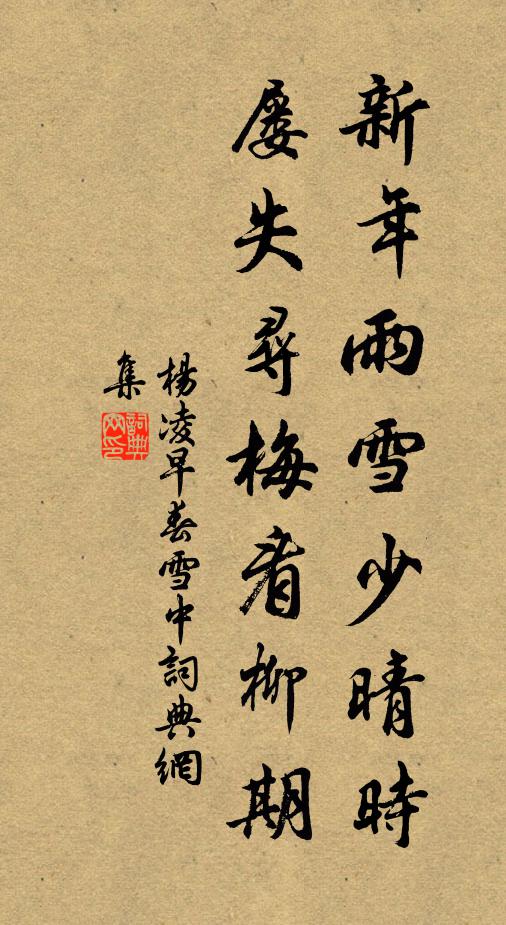 新年雨雪少晴時
屡失尋梅看柳期
楊凌早春雪中詞典網
集
詞典
網印